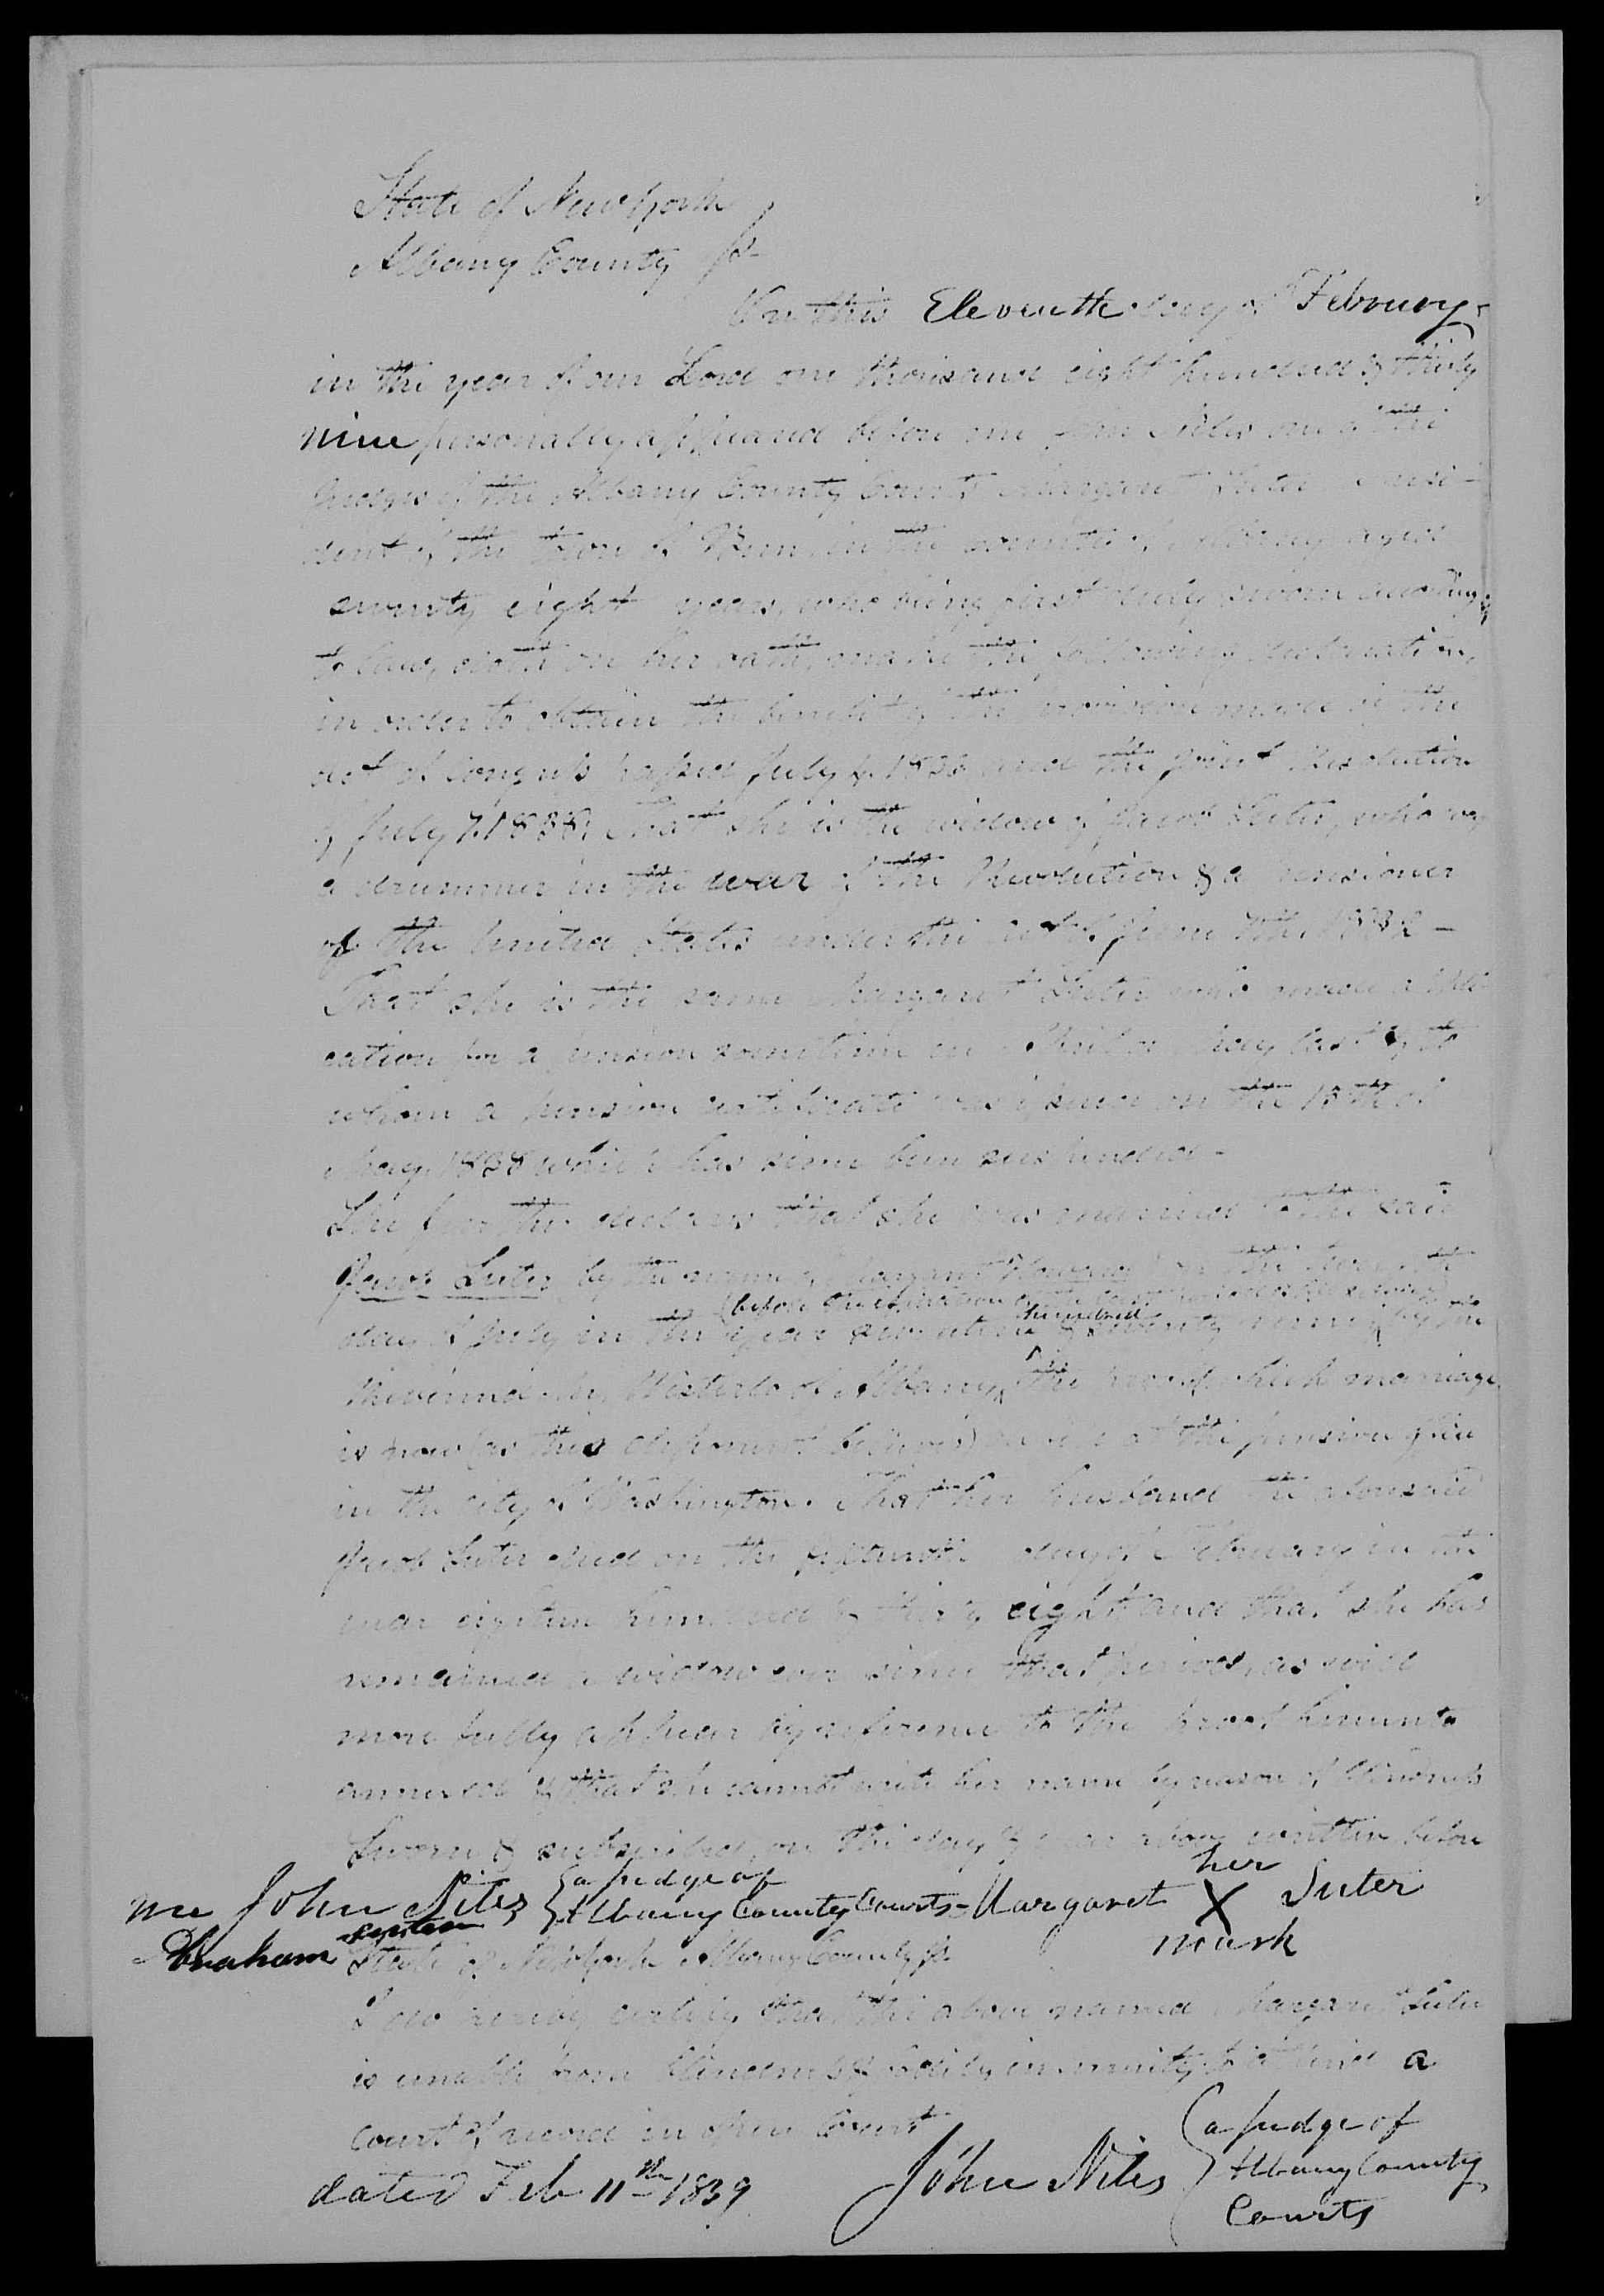 State of New York
Albany County ss
On this Eleventh day of Februry
in the year of our Lord one thousand eight hundred & thirty
nine personally appeared before me John Niles one of the
Judges of the Albany County Courts Margaret Suter a resi-
dent of the town of Bern in the county of Albany aged
seventy eight years, who being first duly sworn according
to law, doth on her oath, make the following declaration,
in order to obtain the benefit of the provision made by the
act of congress passed July 4. 1836 and the joint Resolution
of July 7. 1838; That she is the widow of Jacob Suter, who was
a drummer in the war of the Revolution & a pensioner
of the United States under the act of June 7th. 1832 -
That she is the same Margaret Suter who made appli-
cation for a pension sometime in April or May last & to
whom a pension certificate was issued on the 15th of
May. 1838 which has since been suspended -
She further declares that she was married to the said
Jacob Suter by the name of Margaret on the
(before the expiration of the last period of his service)
day of July in the year seventeen hundred & seventy nine by the
Reverend Mr. Westerlo of Albany, the proof of which marriage
is now (as this deponent believes) on file at the pension office
in the city of Washington. That her husband the aforesaid
Jacob Suter died on the fifteenth day of February in the
year eighteen hundred & thirty eight and that she has
remained a widow ever since that period, as will
more fully appear by reference to the proof hereunto
annexed & that she cannot write her name by reason of blindness
Sworn & subscribed, on the day & year above written before
me John Niles { a Judge of Albany County Courts - Margaret her X mark Suter
Abraham
State of New York Albany County ss
I do hereby certify that the above named Margaret Suter
is unable from blindness & bodily infirmity to attend a
court of record in open Court
dated Feb 11th 1839 John Niles { a Judge of
Albany County
Courts